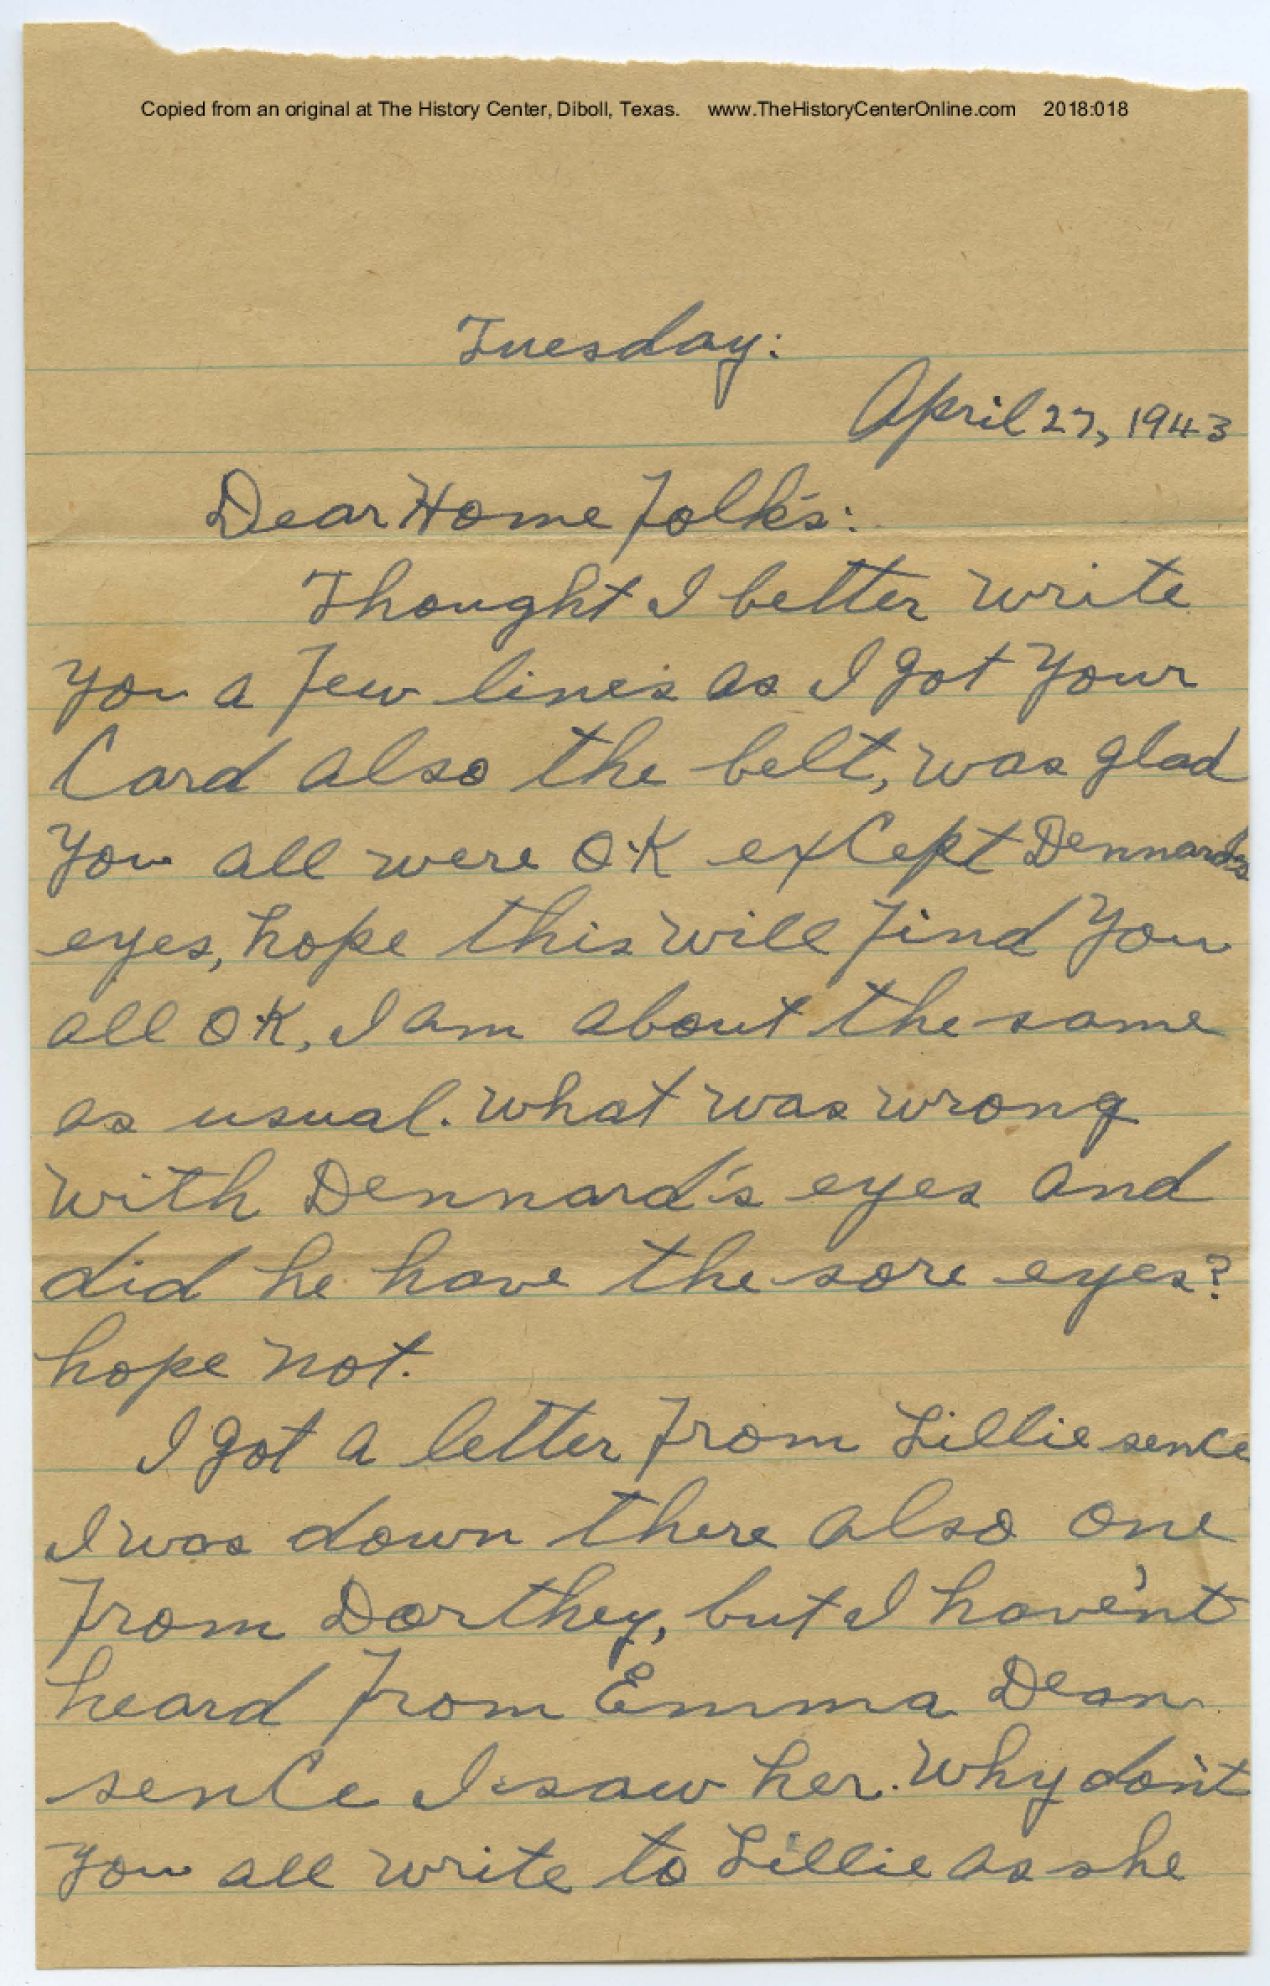 Copied from an original at The History Center, Diboll, Texas. www.TheHistoryCenterOnline.com 2018:018
Tuesday:
April 27, 1943
Dear Home folk's:
Thought I better write
you a few line's as I got your
Card also the belt, was glad
you all were O.K exCept Dennards
eyes, hope this will find you
all OK, I am about the same
as usual. what was wrong
with Dennard's eyes and
did he have the sore eyes?
hope not.
I got a letter from Lillie senCe
I was down there also one
from Dorthey, but I have'nt
heard from Emma Dean
senCe I saw her. Why don't
you all write to Lillie as she